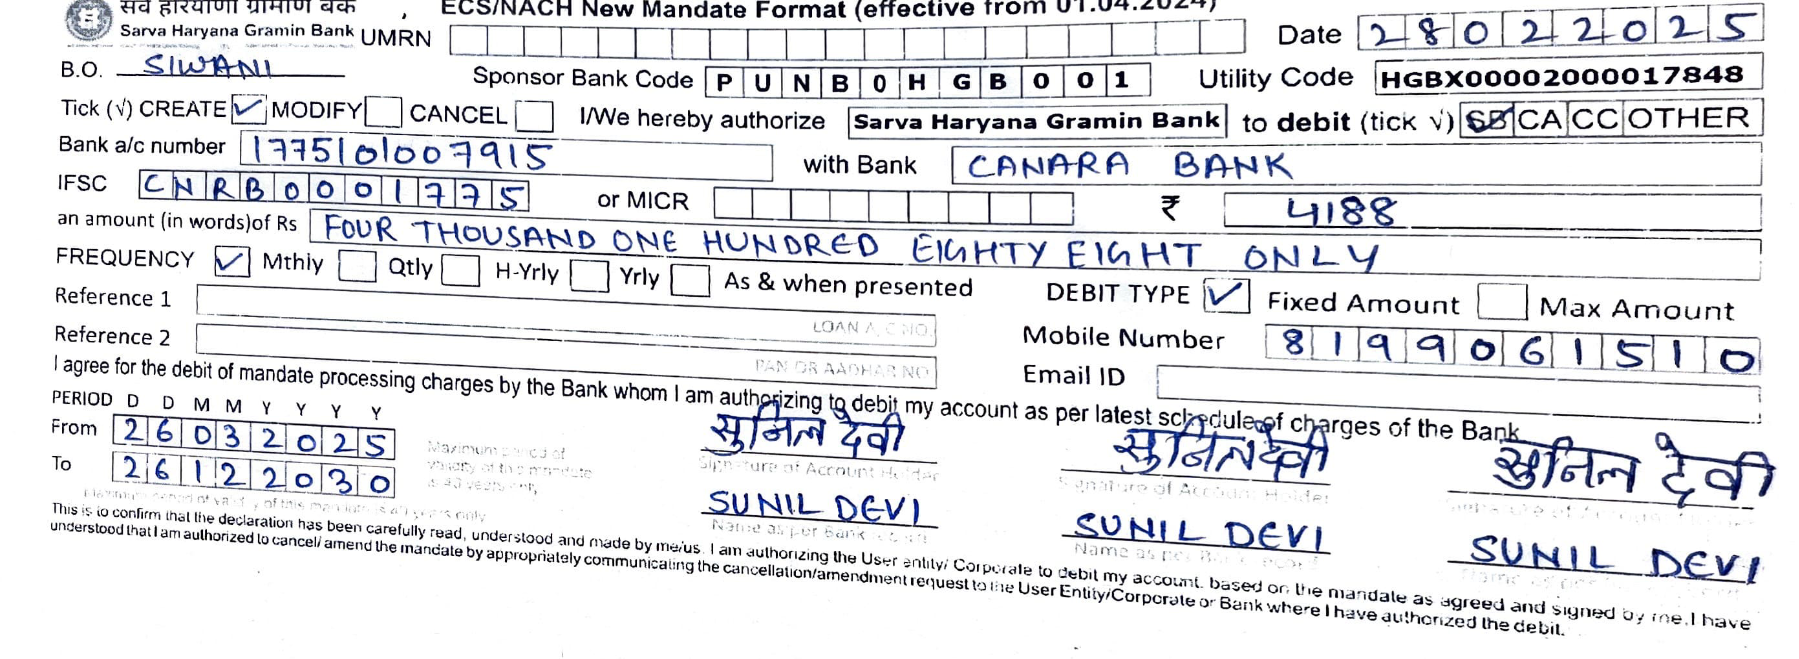 सर्व हरियाणा ग्रामीण बैंक , ECS/NACH New Mandate Format (effective from 01.04.2024)
Sarva Haryana Gramin Bank UMRN Date 28022025
B.O. SIWANI Sponsor Bank Code PUNB0HGB001 Utility Code HGBX00002000017848
Tick (√) CREATE ✓ MODIFY CANCEL I/We hereby authorize Sarva Haryana Gramin Bank to debit (tick √) SB CA CC OTHER
Bank a/c number 1775101007915 with Bank CANARA BANK
IFSC CNRB0001775 or MICR ₹ 4188
an amount (in words)of Rs FOUR THOUSAND ONE HUNDRED EIGHTY EIGHT ONLY
FREQUENCY ✓ Mthly Qtly H-Yrly Yrly As & when presented DEBIT TYPE ✓ Fixed Amount Max Amount
Reference 1 LOAN A/C NO. Mobile Number 8199061510
Reference 2 PAN OR AADHAR NO Email ID
I agree for the debit of mandate processing charges by the Bank whom I am authorizing to debit my account as per latest schedule of charges of the Bank
PERIOD D D M M Y Y Y Y
From 26032025 Maximum period of validity of this mandate is 40 years only सुनिल देवी सुनिल देवी सुनिल देवी
To 26122030 Signature of Account Holder Signature of Account Holder
Maximum period of validity of this mandate is 40 years only SUNIL DEVI SUNIL DEVI SUNIL DEVI
Name as per Bank Name as per Name as per
This is to confirm that the declaration has been carefully read, understood and made by me/us. I am authorizing the User entity/ Corporate to debit my account. based on the mandate as agreed and signed by me.I have
understood that I am authorized to cancel/ amend the mandate by appropriately communicating the cancellation/amendment request to the User Entity/Corporate or Bank where I have authorized the debit.